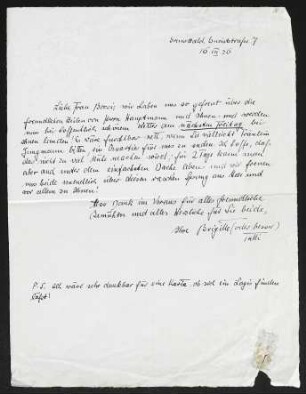 Grunewald, Trabenerstraße 7
16 III 26
Liebe Frau Benvi, wir haben uns so gefreut über die
freundlichen Zeilen von Herrn Hauptmann und Ihnen und werden
nun bei hoffentlich schönem Wetter am nächsten Freitag bei
Ihnen landen! Ich wäre furchtbar nett, wenn Sie vielleicht Fräulein
Jungmann bitten ein Quartier für uns zu suchen ich hoffe, daß
das nicht zu viel Mühe machen wird; für 2 Tage kann man
aber auch unter dem einfachsten Dache leben und wir freuen
uns beide unendlich über diesen raschen Sprung ans Meer und
vor allem zu Ihnen!
Hab Dank im Voraus für alles freundliche
Bemühen und alles Herzliche für Sie beide,
Ihre Brigitte (oder besser)
Tutti
P.S. ich wäre sehr dankbar für eine Karte ob sich ein Logis finden
läßt!